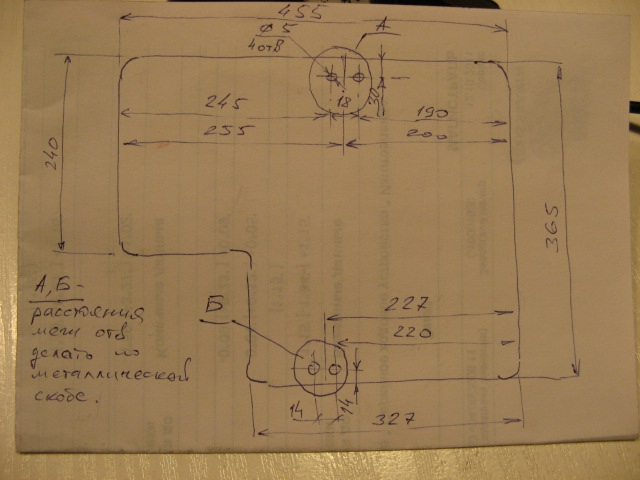 455
Ø 5
4отв
А
245
18
30
190
255
200
240
365
А, Б -
расстояния
межу отв
делать по
металлической
скобе.
Б
227
220
14
14
327